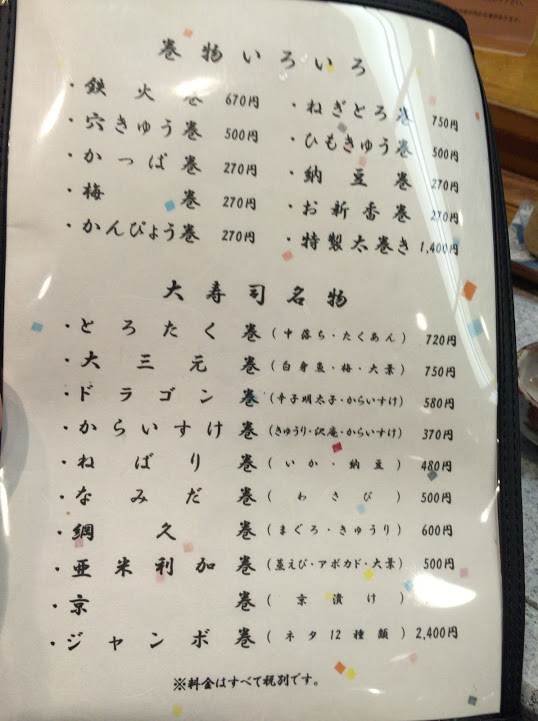 巻物いろいろ
・鉄火巻 670円
・穴きゅう巻 500円
・かっぱ巻 270円
・梅巻 270円
・かんぴょう巻 270円
・ねぎとろ巻 750円
・ひもきゅう巻 500円
・納豆巻 270円
・お新香巻 270円
・特製太巻き 1,400円
大寿司名物
・とろたく巻(中落ち・たくあん) 720円
・大三元巻(白身魚・梅・大葉) 750円
・ドラゴン巻(辛子明太子・からいすけ) 580円
・からいすけ巻(きゅうり・沢庵・からいすけ) 370円
・ねばり巻(いか・納豆) 480円
・なみだ巻(わさび) 500円
・綱久巻(まぐろ・きゅうり) 600円
・亜米利加巻(蒸えび・アボカド・大葉) 500円
・京巻(京漬け)
・ジャンボ巻(ネタ12種類) 2,400円
※料金はすべて税別です。